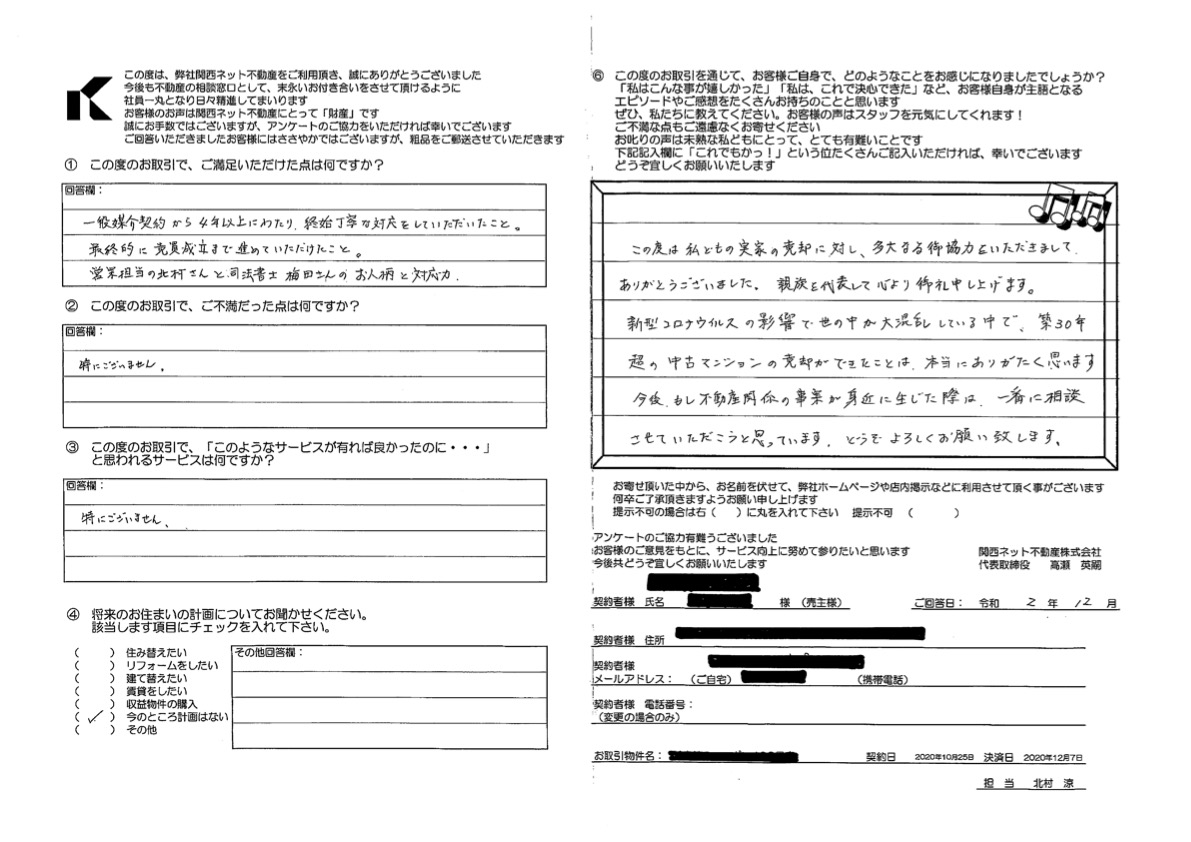 この度は、弊社関西ネット不動産をご利用頂き、誠にありがとうございました
今後も不動産の相談窓口として、末永いお付き合いをさせて頂けるように
社員一丸となり日々精進してまいります
お客様のお声は関西ネット不動産にとって「財産」です
誠にお手数ではございますが、アンケートのご協力をいただければ幸いでございます
ご回答いただきましたお客様にはささやかではございますが、粗品をご郵送させていただきます
① この度のお取引で、ご満足いただけた点は何ですか?
回答欄:
一般媒介契約から4年以上にわたり、終始丁寧な対応をしていただいたこと。
最終的に売買成立まで進めていただけたこと。
営業担当の北村さんと司法書士 梅田さんのお人柄と対応力.
② この度のお取引で、ご不満だった点は何ですか?
回答欄:
特にございません.
③ この度のお取引で、「このようなサービスが有れば良かったのに・・・」
と思われるサービスは何ですか?
回答欄:
特にございません、
④ 将来のお住まいの計画についてお聞かせください。
該当します項目にチェックを入れて下さい。
( ) 住み替えたい
( ) リフォームをしたい
( ) 建て替えたい
( ) 賃貸をしたい
( ) 収益物件の購入
( ✓ ) 今のところ計画はない
( ) その他
その他回答欄:
⑥ この度のお取引を通じて、お客様ご自身で、どのようなことをお感じになりましたでしょうか?
「私はこんな事が嬉しかった」「私は、これで決心できた」など、お客様自身が主語となる
エピソードやご感想をたくさんお持ちのことと思います
ぜひ、私たちに教えてください。お客様の声はスタッフを元気にしてくれます!
ご不満な点もご遠慮なくお寄せください
お叱りの声は未熟な私どもにとって、とても有難いことです
下記記入欄に「これでもかっ!」という位たくさんご記入いただければ、幸いでございます
どうぞ宜しくお願いいたします
この度は私どもの実家の売却に対し、多大なる御協力をいただきまして、
ありがとうございました、親族を代表して心より御礼申し上げます。
新型コロナウイルスの影響で世の中が大混乱している中で、築30年
超の中古マンションの売却ができたことは、本当にありがたく思います
今後、もし不動産関係の事案が身近に生じた際は、一番に相談
させていただこうと思っています、どうぞよろしくお願い致します、
お寄せ頂いた中から、お名前を伏せて、弊社ホームページや店内掲示などに利用させて頂く事がございます
何卒ご了承頂きますようお願い申し上げます
提示不可の場合は右( )に丸を入れて下さい 提示不可 ( )
アンケートのご協力有難うございました
お客様のご意見をもとに、サービス向上に努めて参りたいと思います
今後共どうぞ宜しくお願いいたします
関西ネット不動産株式会社
代表取締役 高瀬 英嗣
契約者様 氏名 様 (売主様) ご回答日: 令和 2 年 12 月
契約者様 住所
契約者様
メールアドレス: (ご自宅) (携帯電話)
契約者様 電話番号:
(変更の場合のみ)
お取引物件名: 契約日 2020年10月25日 決済日 2020年12月7日
担 当 北村 涼